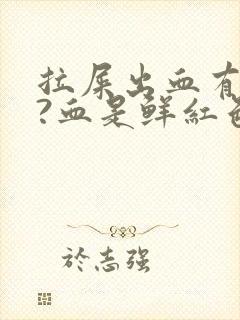 拉屎出血有
?血是鲜红色
於志强